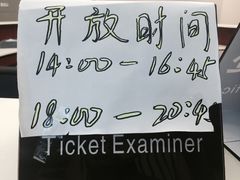 开放时间
14:00—16:45
18:00—20:45
Ticket Examiner